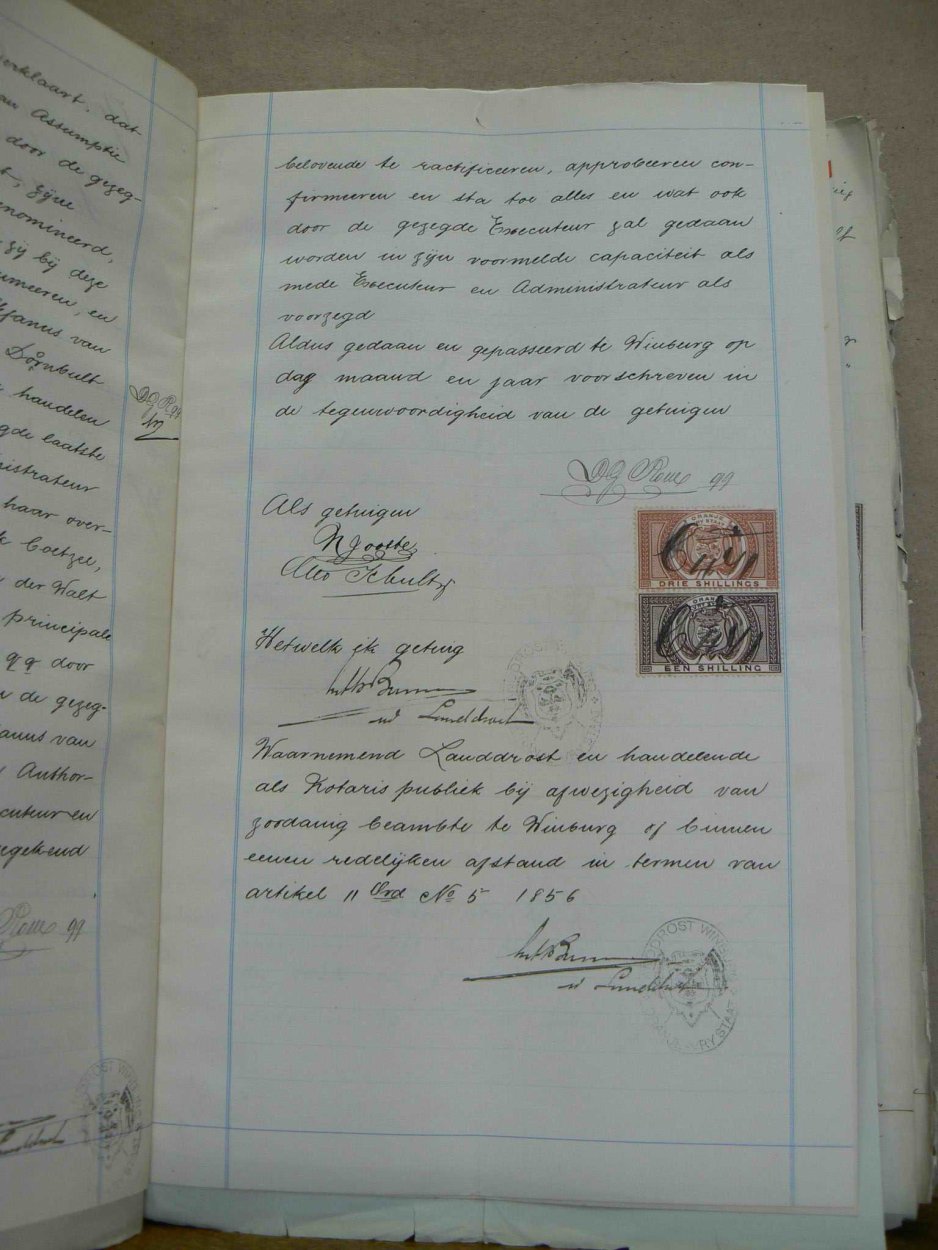 verklaart, dat
Assumptie
door de gezeg-
zijne
genomineerd,
zij bij deze
sumeeren, en
Stefanus van
Dörnbult
handelen
gezegde laatste
nistrateur
haar over-
Coetzee,
der Walt
principale
qq door
de gezeg-
anus van
Author-
cuteur en
qq
belovende te ractificeeren, approbeeren con-
firmeeren en sta toe alles en wat ook
door de gezegde Executeur zal gedaan
worden in zijn voormelde capaciteit als
mede Executeur en Administrateur als
voorzegd
Aldus gedaan en gepasseerd te Winburg op
dag maand en jaar voorschreven in
de tegenwoordigheid van de getuigen
qq
Als getuigen
N Jooste
Otto Schultz
ORANJE
VRY STAAT
DRIE SHILLINGS
ORANJE
EEN SHILLING
Hetwelk ik getuig
wd Landdrost
Waarnemend Landdrost en handelende
als Notaris publiek bij afwezigheid van
zoodanig beambte te Winburg of binnen
eenen redelijken afstand in termen van
artikel 11 Ord No 5 1856
wd Landdrost
LANDDROST WINBURG
ORANJE VRYSTAAT